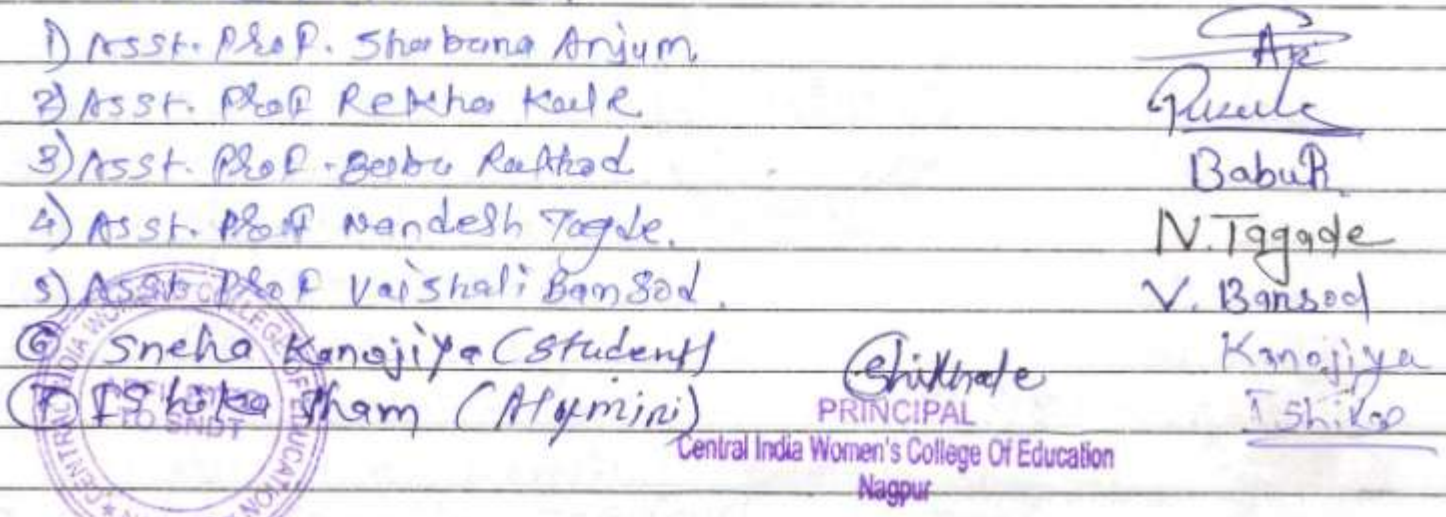 1) Asst. Prof. Shabana Anjum
2) Asst. Prof Rekha Kale
3) Asst. Prof. Babu Rathod BabuR.
4) Asst. Prof Nandesh Tagde. N. Tagade
5) Asst. Prof Vaishali Bansod. V. Bansod
6 Sneha Kanojiya (Student) Kanojiya
7 Ishika Sham (Alymini) Ishika
PRINCIPAL
Central India Women's College Of Education
Nagpur
TO SNDT